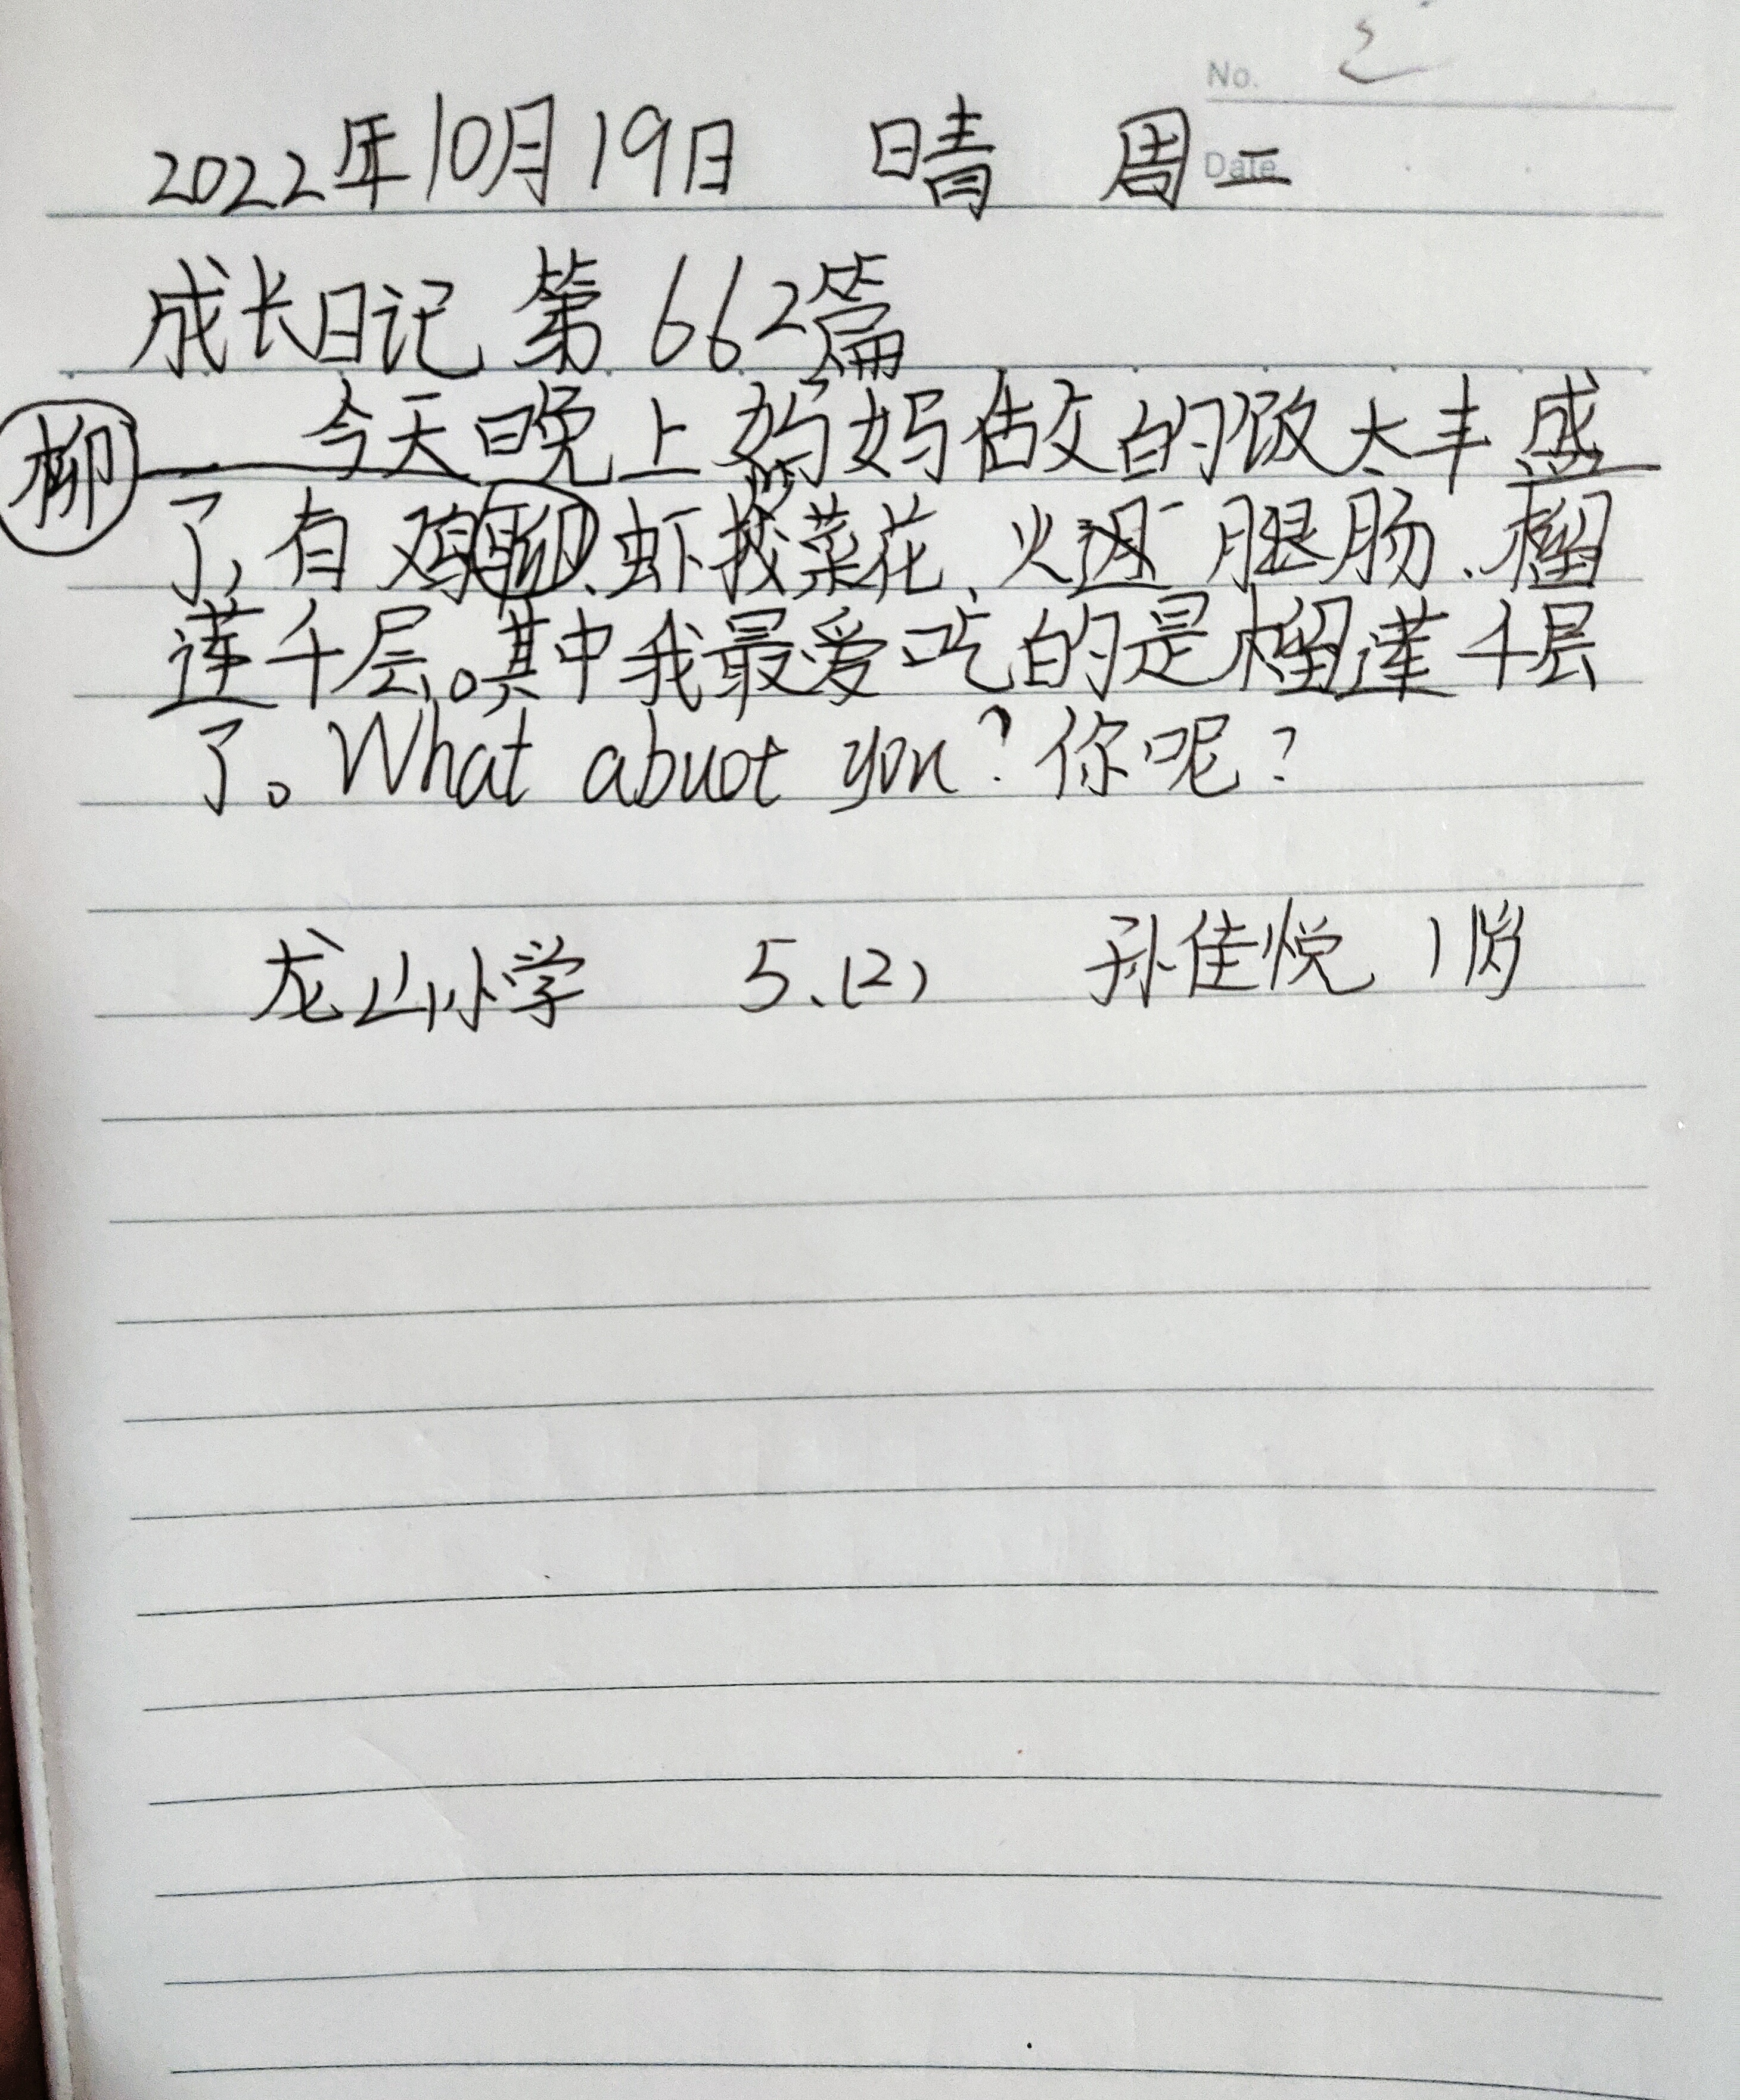 No.
2022年10月19日 晴 周二
Date
成长日记 第 662篇
今天晚上妈妈做的饭太丰盛
柳
了,有鸡柳、虾找菜花、火腿肠、榴
莲千层。其中我最爱吃的是榴莲千层
了。What abuot you?你呢?
龙山小学 5.(2) 孙佳悦 11岁